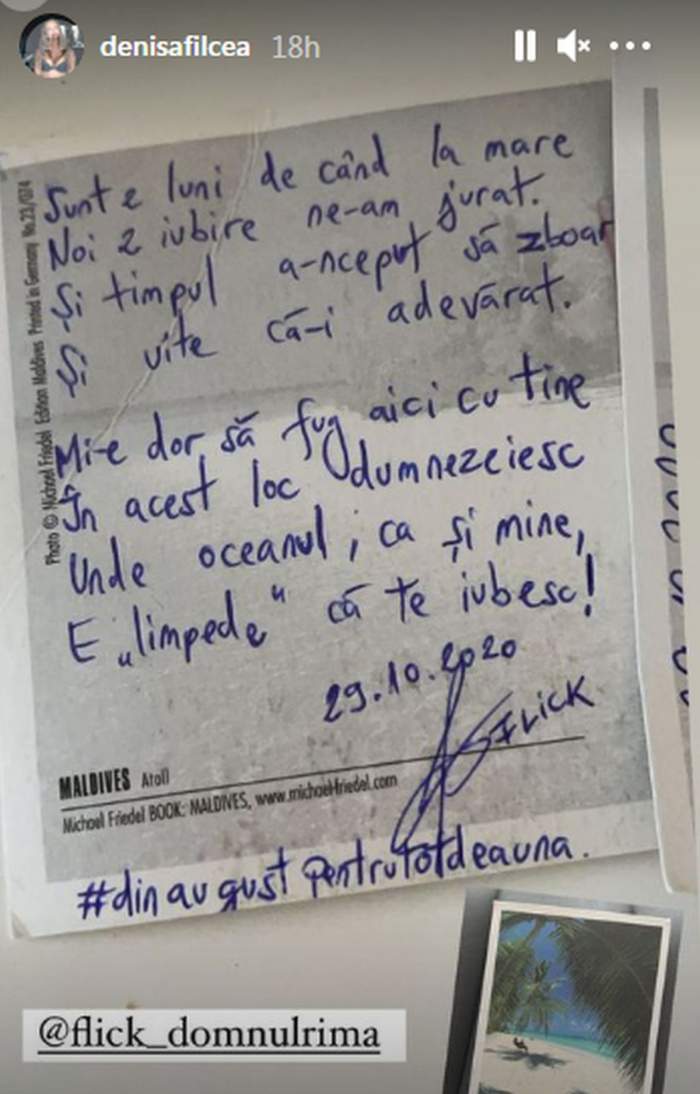 denisafilcea 18h
Sunt 2 luni de când la mare
Noi 2 iubire ne-am jurat.
Și timpul a-nceput să zboar
Și uite că-i adevărat.
Mi-e dor să fug aici cu tine
În acest loc dumnezeiesc
Unde oceanul, ca și mine,
E „limpede" că te iubesc!
29.10.2020
FLICK
MALDIVES Atoll
Michael Friedel BOOK: MALDIVES, www.michael-friedel.com
#dinaugustpentrutotdeauna.
Photo © Michael Friedel Edition Maldives Printed in Germany No.23/074
@flick_domnulrima